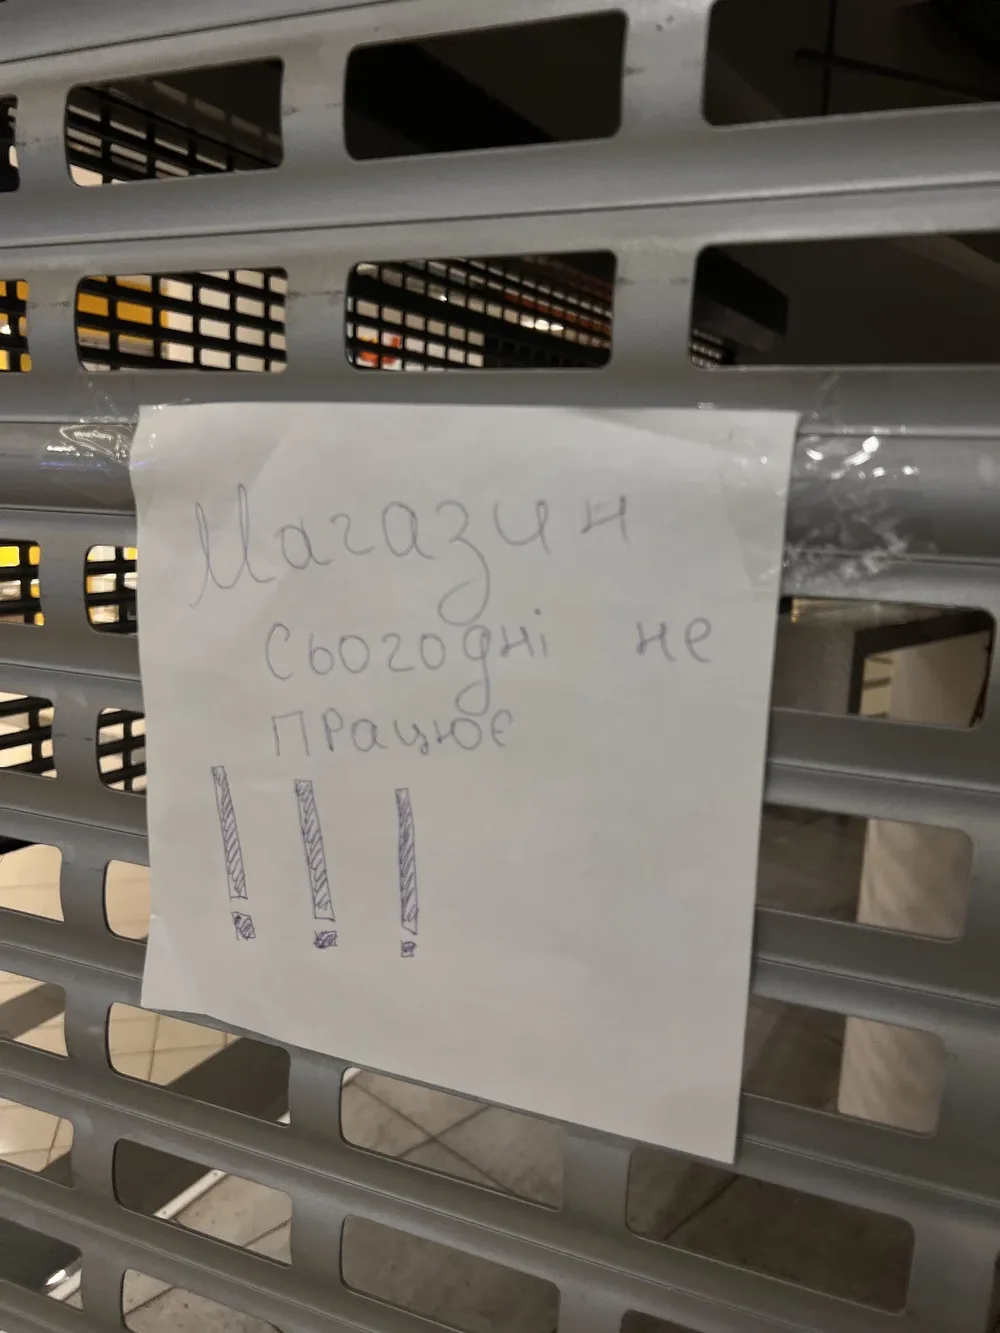 Магазин
сьогодні не
працює
!!!